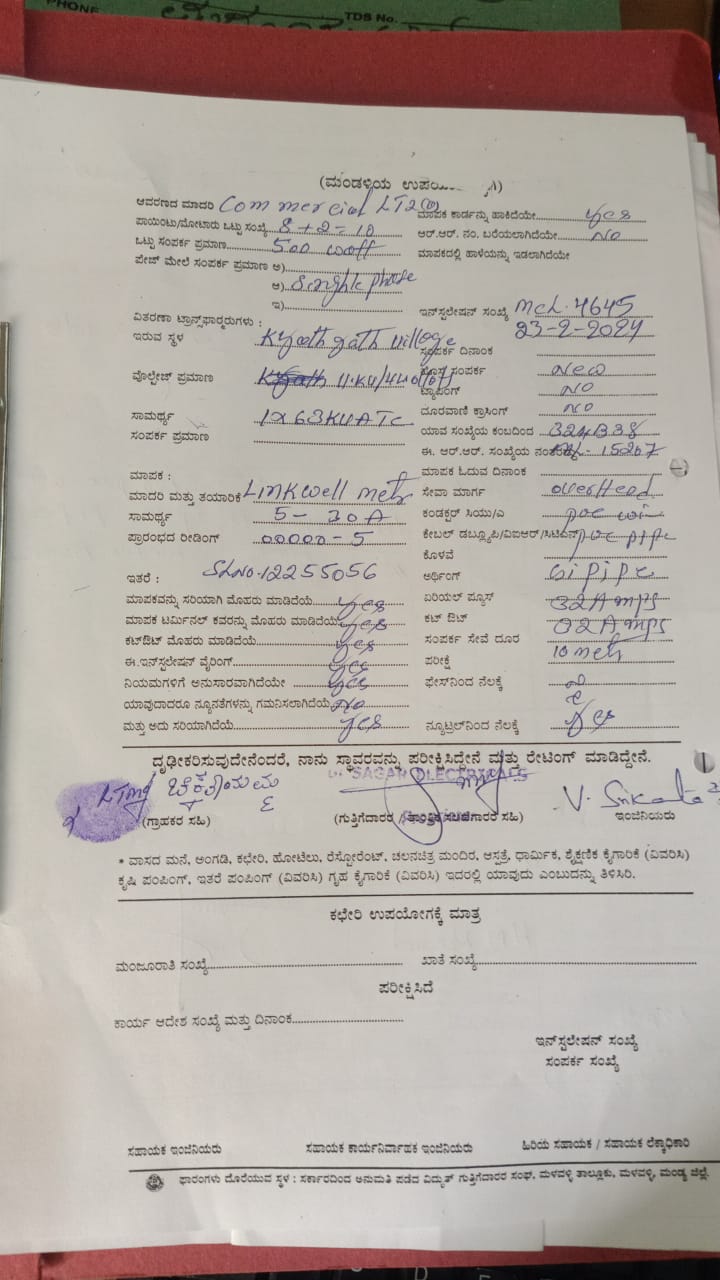 PHONE TDS No.
(ಮಂಡಳಿಯ
ಆವರಣದ ಮಾದರಿ Commercial LT2(b) ಮಾಪಕ ಕಾರ್ಡನ್ನು ಹಾಕಿದೆಯೇ yes
ಪಾಯಿಂಟು/ಮೋಟಾರು ಒಟ್ಟು ಸಂಖ್ಯೆ 8+2=10 ಆರ್.ಆರ್. ನಂ. ಬರೆಯಲಾಗಿದೆಯೇ NO
ಒಟ್ಟು ಸಂಪರ್ಕ ಪ್ರಮಾಣ 500 watt ಮಾಪಕದಲ್ಲಿ ಹಾಳೆಯನ್ನು ಇಡಲಾಗಿದೆಯೇ
ಪೇಜ್ ಮೇಲೆ ಸಂಪರ್ಕ ಪ್ರಮಾಣ ಅ)
ಆ) Singhle phase
ಇ) ಇನ್‌ಸ್ಟಲೇಷನ್ ಸಂಖ್ಯೆ MCL.4645
ವಿತರಣಾ ಟ್ರಾನ್ಸ್‌ಫಾರ್ಮರುಗಳು : 23-2-2024
ಇರುವ ಸ್ಥಳ village ಸಂಪರ್ಕ ದಿನಾಂಕ
ವೊಲ್ಟೇಜ್ ಪ್ರಮಾಣ 11.KV/440 ಸಂಪರ್ಕ New
ಟ್ಯಾಪಿಂಗ್ NO
ಸಾಮರ್ಥ್ಯ 1X63KVATC ದೂರವಾಣಿ ಕ್ರಾಸಿಂಗ್ NO
ಸಂಪರ್ಕ ಪ್ರಮಾಣ ಯಾವ ಸಂಖ್ಯೆಯ ಕಂಬದಿಂದ
ಈ. ಆರ್.ಆರ್. ಸಂಖ್ಯೆಯ 15207
ಮಾಪಕ : ಮಾಪಕ ಓದುವ ದಿನಾಂಕ
ಮಾದರಿ ಮತ್ತು ತಯಾರಿಕೆ Linkwell ಸೇವಾ ಮಾರ್ಗ overHead
ಸಾಮರ್ಥ್ಯ 5-30A ಕಂಡಕ್ಟರ್ ಸಿಯು/ಎ pvc
ಪ್ರಾರಂಭದ ರೀಡಿಂಗ್ 00000-5 ಕೇಬಲ್ ಡಬ್ಲ್ಯೂಪಿ/ವಿಐಆರ್/ಸಿಟಿಎಸ್ pvc pipe
ಕೊಳವೆ
ಇತರೆ : SLNO.12255056 ಅರ್ಥಿಂಗ್ Gi pipe
ಮಾಪಕವನ್ನು ಸರಿಯಾಗಿ ಮೊಹರು ಮಾಡಿದೆಯೆ yes ಏರಿಯಲ್ ಪ್ಯೂಸ್ 32Amps
ಮಾಪಕ ಟರ್ಮಿನಲ್ ಕವರನ್ನು ಮೊಹರು ಮಾಡಿದೆಯೆ yes ಕಟ್ ಔಟ್ 32Amps
ಕಟ್‌ಔಟ್ ಮೊಹರು ಮಾಡಿದೆಯೇ yes ಸಂಪರ್ಕ ಸೇವೆ ದೂರ
ಈ.ಇನ್‌ಸ್ಟಲೇಷನ್ ವೈರಿಂಗ್ yes ಪರೀಕ್ಷೆ 10 metr
ನಿಯಮಗಳಿಗೆ ಅನುಸಾರವಾಗಿದೆಯೇ yes ಫೇಸ್‌ನಿಂದ ನೆಲಕ್ಕೆ
ಯಾವುದಾದರೂ ನ್ಯೂನತೆಗಳನ್ನು ಗಮನಿಸಲಾಗಿದೆಯೆ No
ಮತ್ತು ಅದು ಸರಿಯಾಗಿದೆಯೆ yes ನ್ಯೂಟ್ರಲ್‌ನಿಂದ ನೆಲಕ್ಕೆ yes
ದೃಢೀಕರಿಸುವುದೇನೆಂದರೆ, ನಾನು ಸ್ಥಾವರವನ್ನು ಪರೀಕ್ಷಿಸಿದ್ದೇನೆ ಮತ್ತು ರೇಟಿಂಗ್ ಮಾಡಿದ್ದೇನೆ.
SAGAR ELECTRICALS
V. Srikanta
(ಗ್ರಾಹಕರ ಸಹಿ) (ಗುತ್ತಿಗೆದಾರರ ಸಹಿ) ಇಂಜಿನಿಯರು
* ವಾಸದ ಮನೆ, ಅಂಗಡಿ, ಕಛೇರಿ, ಹೋಟೆಲು, ರೆಸ್ಟೋರೆಂಟ್, ಚಲನಚಿತ್ರ ಮಂದಿರ, ಆಸ್ಪತ್ರೆ, ಧಾರ್ಮಿಕ, ಶೈಕ್ಷಣಿಕ ಕೈಗಾರಿಕೆ (ವಿವರಿಸಿ)
ಕೃಷಿ ಪಂಪಿಂಗ್, ಇತರೆ ಪಂಪಿಂಗ್ (ವಿವರಿಸಿ) ಗೃಹ ಕೈಗಾರಿಕೆ (ವಿವರಿಸಿ) ಇದರಲ್ಲಿ ಯಾವುದು ಎಂಬುದನ್ನು ತಿಳಿಸಿರಿ.
ಕಛೇರಿ ಉಪಯೋಗಕ್ಕೆ ಮಾತ್ರ
ಮಂಜೂರಾತಿ ಸಂಖ್ಯೆ ಖಾತೆ ಸಂಖ್ಯೆ
ಪರೀಕ್ಷಿಸಿದೆ
ಕಾರ್ಯ ಆದೇಶ ಸಂಖ್ಯೆ ಮತ್ತು ದಿನಾಂಕ
ಇನ್‌ಸ್ಟಲೇಷನ್ ಸಂಖ್ಯೆ
ಸಂಪರ್ಕ ಸಂಖ್ಯೆ
ಸಹಾಯಕ ಇಂಜಿನಿಯರು ಸಹಾಯಕ ಕಾರ್ಯನಿರ್ವಾಹಕ ಇಂಜಿನಿಯರು ಹಿರಿಯ ಸಹಾಯಕ / ಸಹಾಯಕ ಲೆಕ್ಕಾಧಿಕಾರಿ
ಫಾರಂಗಳು ದೊರೆಯುವ ಸ್ಥಳ : ಸರ್ಕಾರದಿಂದ ಅನುಮತಿ ಪಡೆದ ವಿದ್ಯುತ್ ಗುತ್ತಿಗೆದಾರರ ಸಂಘ, ಮಳವಳ್ಳಿ ತಾಲ್ಲೂಕು, ಮಳವಳ್ಳಿ, ಮಂಡ್ಯ ಜಿಲ್ಲೆ.